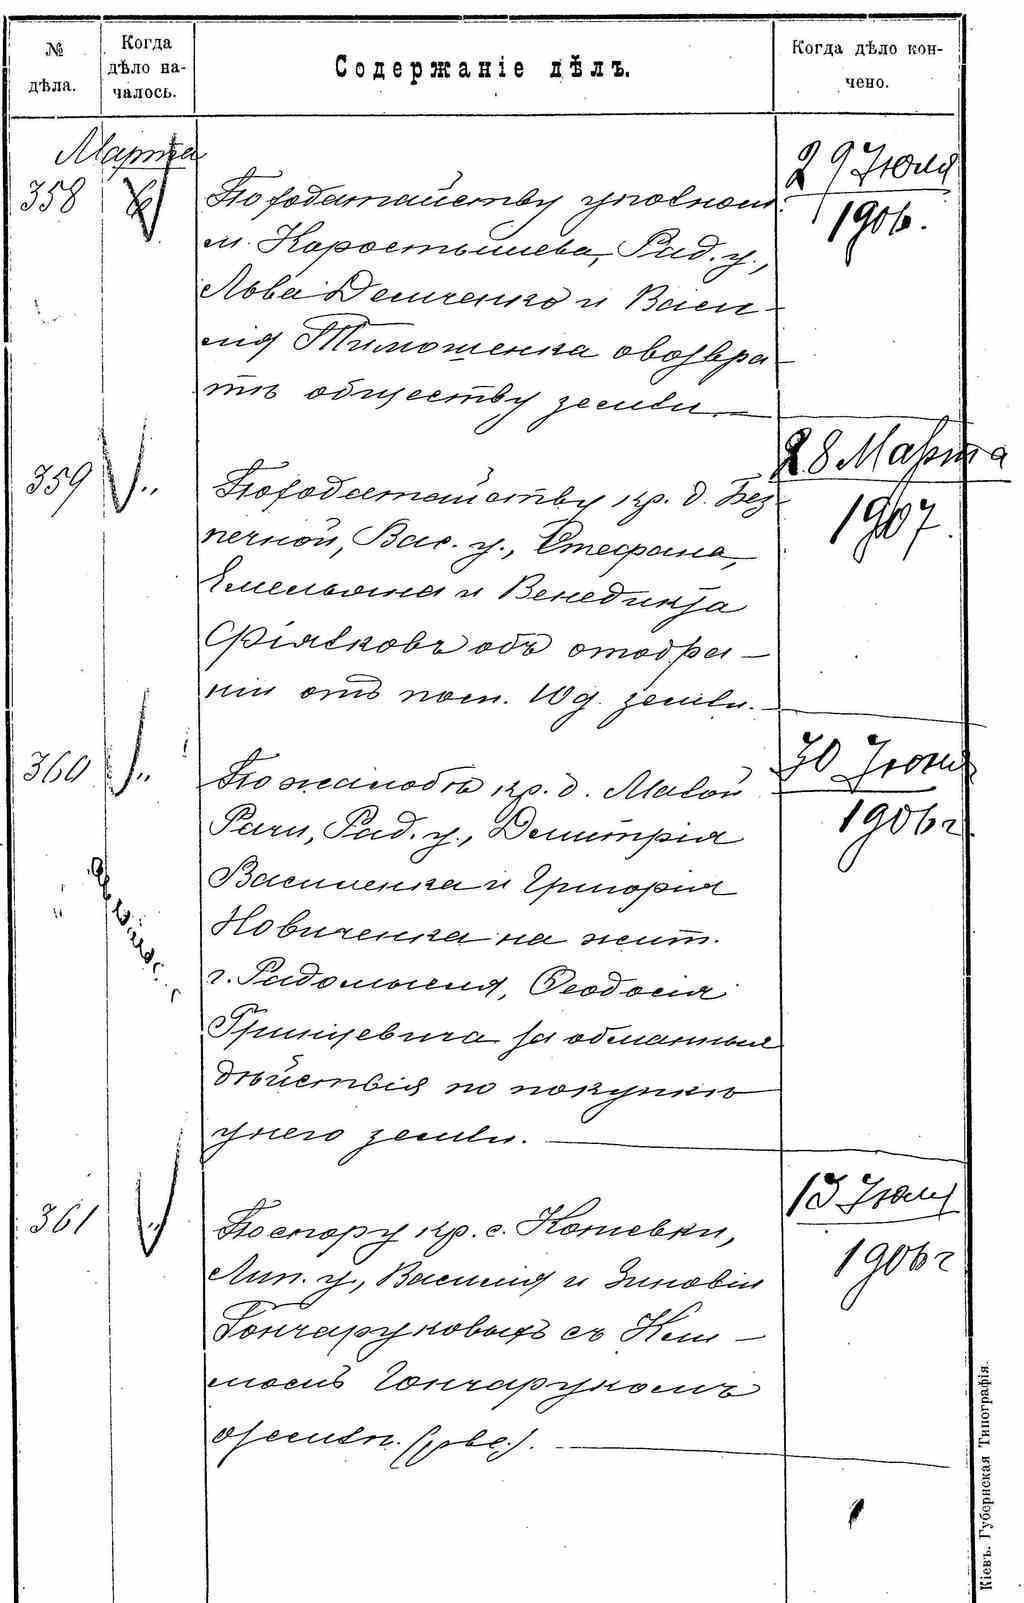 № дѣла.
Когда дѣло на-
чалось.
Содержаніе дѣлъ.
Когда дѣло кон-
чено.
Марта
358
6
По ходатайству уполном.
м. Коростышева, Рад. у.,
Льва Демченко и Васи-
лія Тимошенка о возвра-
тѣ обществу земли.
29 Іюля
1906.
359
"
По ходатайству кр. д. Без-
печной, Вас. у., Стефана,
Емельяна и Венедикта
Фіялковъ объ отобра-
ніи отъ пом. 10 д. земли.
28 Марта
1907.
360
"
По жалобѣ кр. д. Малой
Рачи, Рад. у., Димитрія
Василенка и Григорія
Новиченка на жит.
г. Радомысля, Ѳеодосія
Гринцевича за обманныя
дѣйствія по покупкѣ
у него земли.
30 Іюня
1906 г
361
"
По спору кр. с.
Лип. у., Василія и Зиновіи
Гончаруковыхъ съ Кли-
момъ Гончарукомъ
о земли.
13 Іюля
1906 г
Кіевъ. Губернская Типографія.